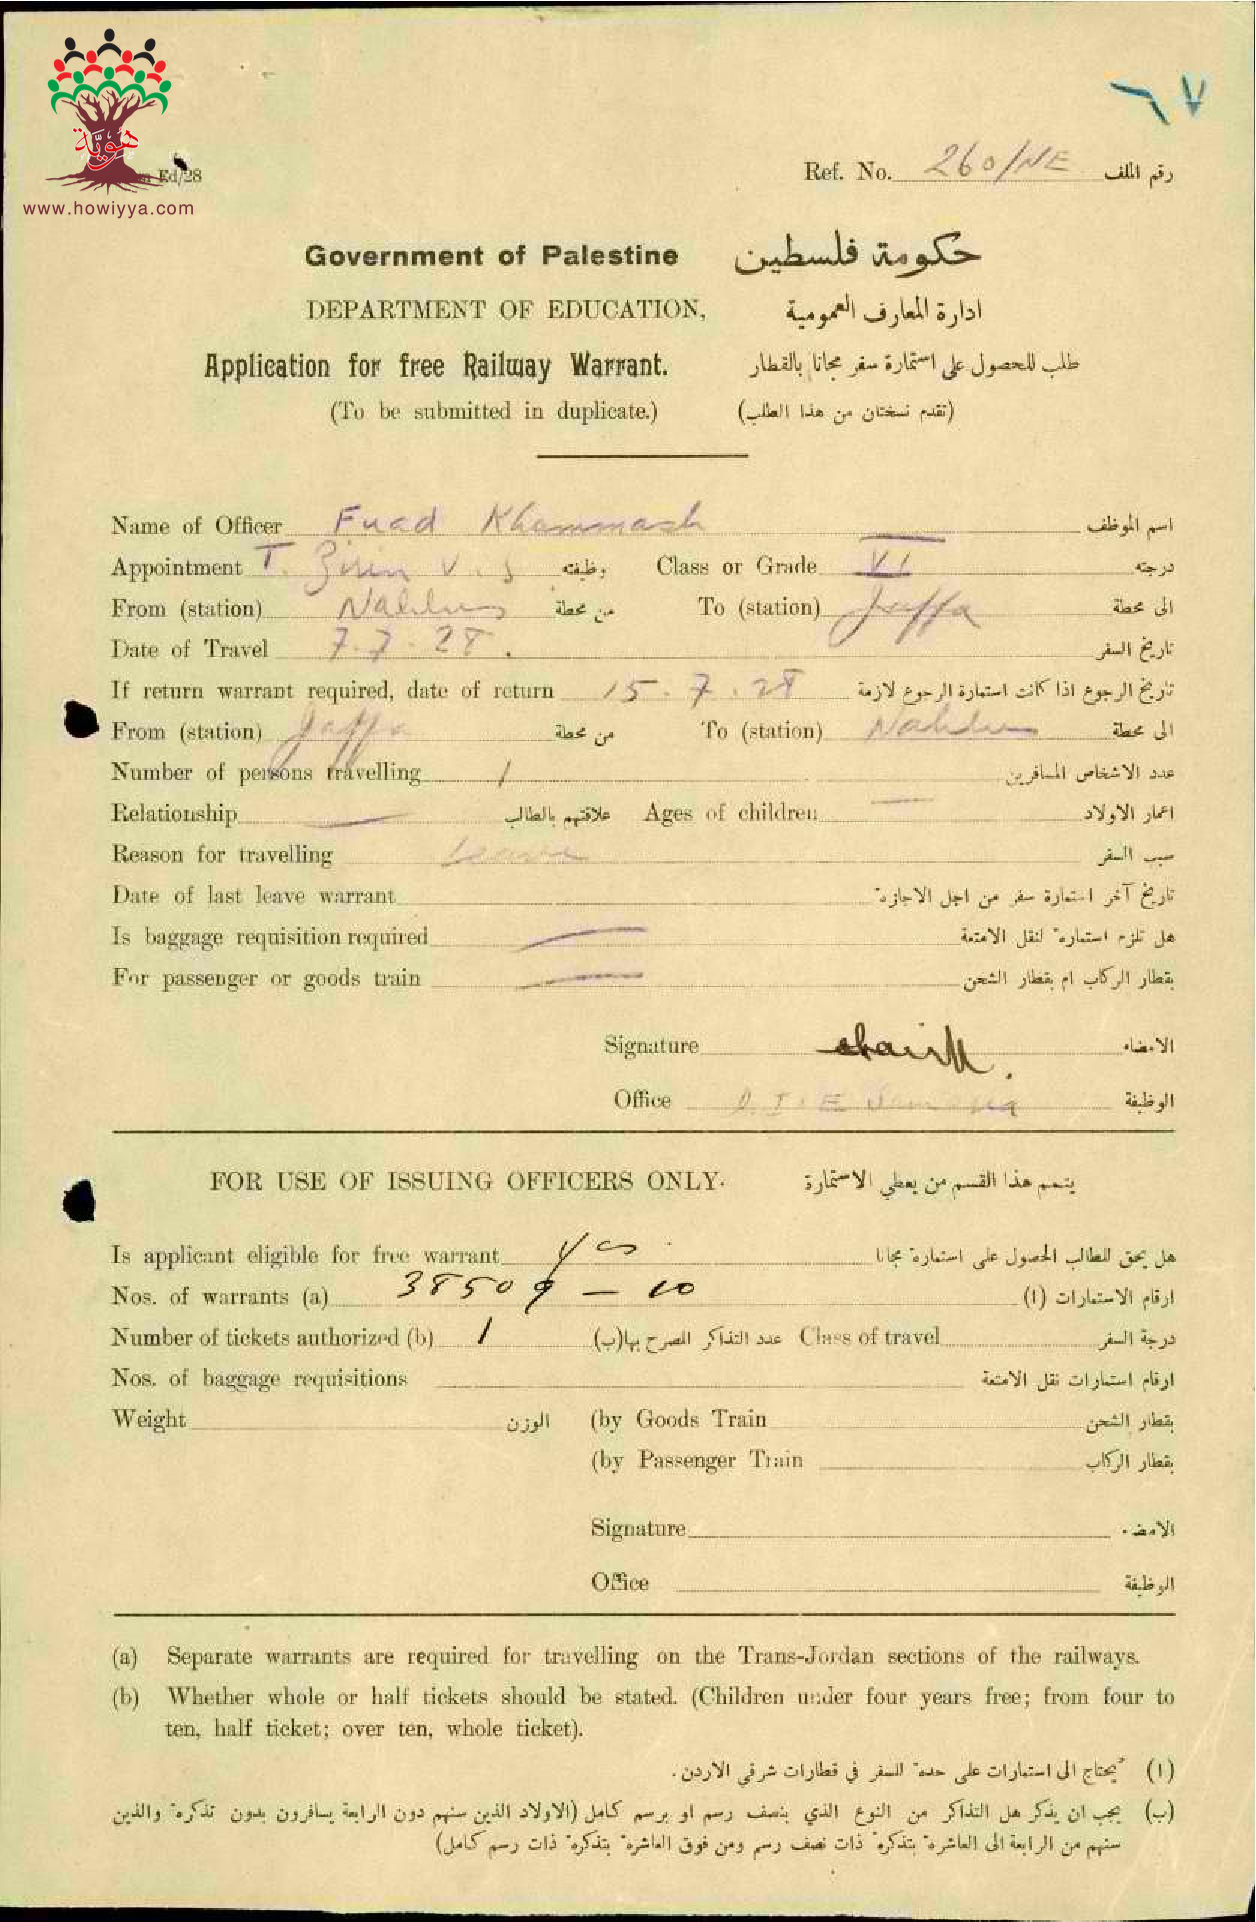 ٦٧
هوية
Ed/28
www.howiyya.com
Ref. No. 260/NE رقم الملف
Government of Palestine حكومة فلسطين
DEPARTMENT OF EDUCATION, ادارة المعارف العمومية
Application for free Railway Warrant. طلب للحصول على استمارة سفر مجانا بالقطار
(To be submitted in duplicate.) (تقدم نسختان من هذا الطلب)
Name of Officer Fuad Khammash اسم الموظف
Appointment T. Zirin V.S وظيفته Class or Grade VI درجته
From (station) Nablus من محطة To (station) Jaffa الى محطة
Date of Travel 7.7.28. تاريخ السفر
If return warrant required, date of return 15.7.28 تاريخ الرجوع اذا كانت استمارة الرجوع لازمة
From (station) Jaffa من محطة To (station) Nablus الى محطة
Number of persons travelling 1 عدد الاشخاص المسافرين
Relationship — علاقتهم بالطالب Ages of children — اعمار الاولاد
Reason for travelling Leave سبب السفر
Date of last leave warrant تاريخ آخر استمارة سفر من اجل الاجازة
Is baggage requisition required — هل تلزم استمارة لنقل الامتعة
For passenger or goods train — بقطار الركاب ام بقطار الشحن
Signature الامضاء
Office D.I.E Samaria الوظيفة
FOR USE OF ISSUING OFFICERS ONLY. يتمم هذا القسم من يعطي الاستمارة
Is applicant eligible for free warrant yes هل يحق للطالب الحصول على استمارة مجانا
Nos. of warrants (a) 38509 – 10 ارقام الاستمارات (ا)
Number of tickets authorized (b) 1 عدد التذاكر المصرح بها(ب) Class of travel درجة السفر
Nos. of baggage requisitions ارقام استمارات نقل الامتعة
Weight الوزن (by Goods Train بقطار الشحن
(by Passenger Train بقطار الركاب
Signature الامضاء
Office الوظيفة
(a) Separate warrants are required for travelling on the Trans-Jordan sections of the railways.
(b) Whether whole or half tickets should be stated. (Children under four years free; from four to
ten, half ticket; over ten, whole ticket).
(ا) يحتاج الى استمارات على حدة للسفر في قطارات شرقي الاردن.
(ب) يجب ان يذكر هل التذاكر من النوع الذي بنصف رسم او برسم كامل (الاولاد الذين سنهم دون الرابعة يسافرون بدون تذكرة والذين
سنهم من الرابعة الى العاشرة بتذكرة ذات نصف رسم ومن فوق العاشرة بتذكرة ذات رسم كامل)